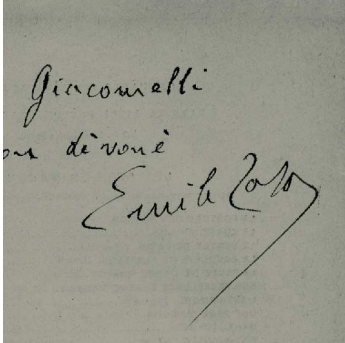 Giacomelli
dévoué
Emile Zola